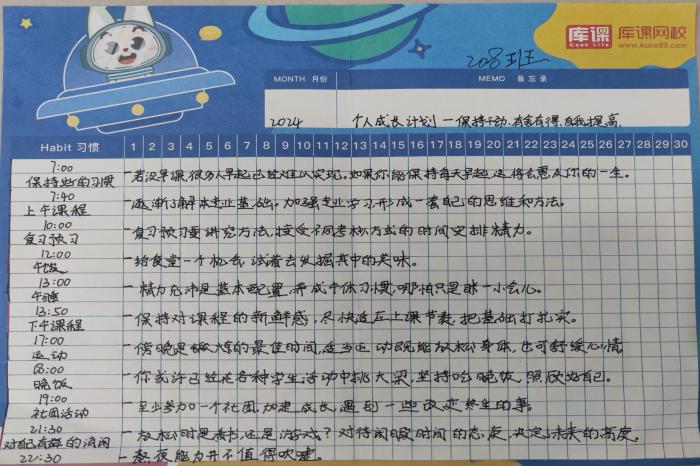 库课 库课网校
Cook Life www.kuke99.com
208班
MONTH 月份 MEMO 备忘录
2024 个人成长计划-保持行动.有舍有得.自我提高.
Habit 习惯 1 2 3 4 5 6 7 8 9 10 11 12 13 14 15 16 17 18 19 20 21 22 23 24 25 26 27 28 29 30
7:00
保持好的习惯 -若没早课,很多人早起已经难以实现.如果你能保持每天早起,这将会惠及你的一生.
7:40
上午课程 -逐渐了解本专业基础.加强专业学习,形成一套自己的思维和方法.
10:00
复习预习 -复习预习要讲究方法,接受不同考核方式的时间安排精力.
12:00
午饭 -给食堂一个机会,试着去发掘其中的美味.
13:00
午睡 -精力充沛是基本配置,养成午休习惯,哪怕只是眯一小会儿.
13:50
下午课程 -保持对课程的新鲜感,尽快适应上课节奏,把基础打扎实.
17:00
运动 -傍晚是锻炼的最佳时间,适当运动既能放松身体,也可舒缓心情.
08:00
晚饭 -你或许已经在各种学生活动中挑大梁,坚持吃晚饭,照顾好自己.
19:00
社团活动 -至少参加一个社团,加速成长,遇到一些改变终生的事.
21:30
对自己有益的消闲 -放松时是看书还是游戏?对待闲暇时间的态度,决定未来的高度.
22:30 -熬夜能力并不值得吹嘘.